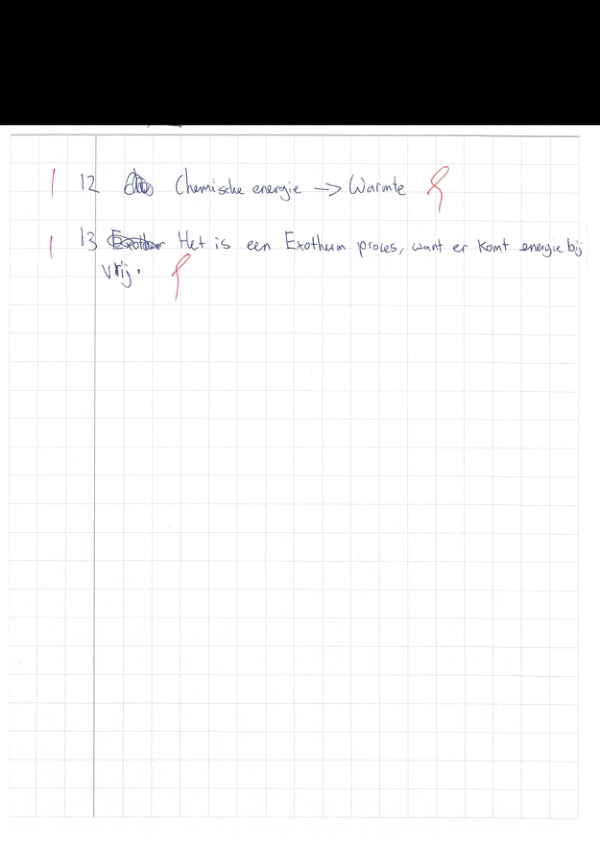 1 12 Chemische energie -> Warmte
1 13 Het is een Exotherm proces, want er komt energie bij
vrij.